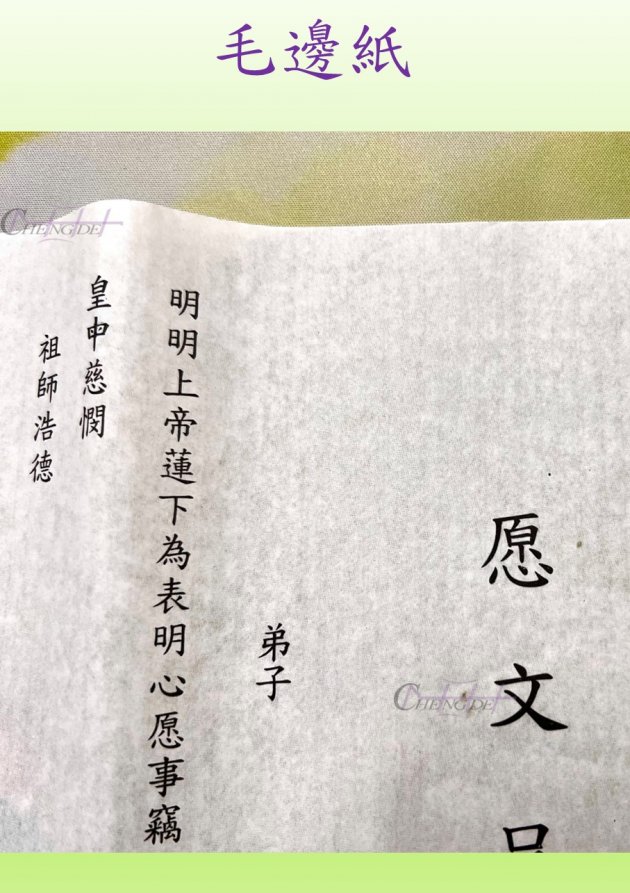 毛邊紙
愿文
弟子
明明上帝蓮下為表明心愿事竊
皇申慈憫
祖師浩德
CHENG DE
CHENG DE